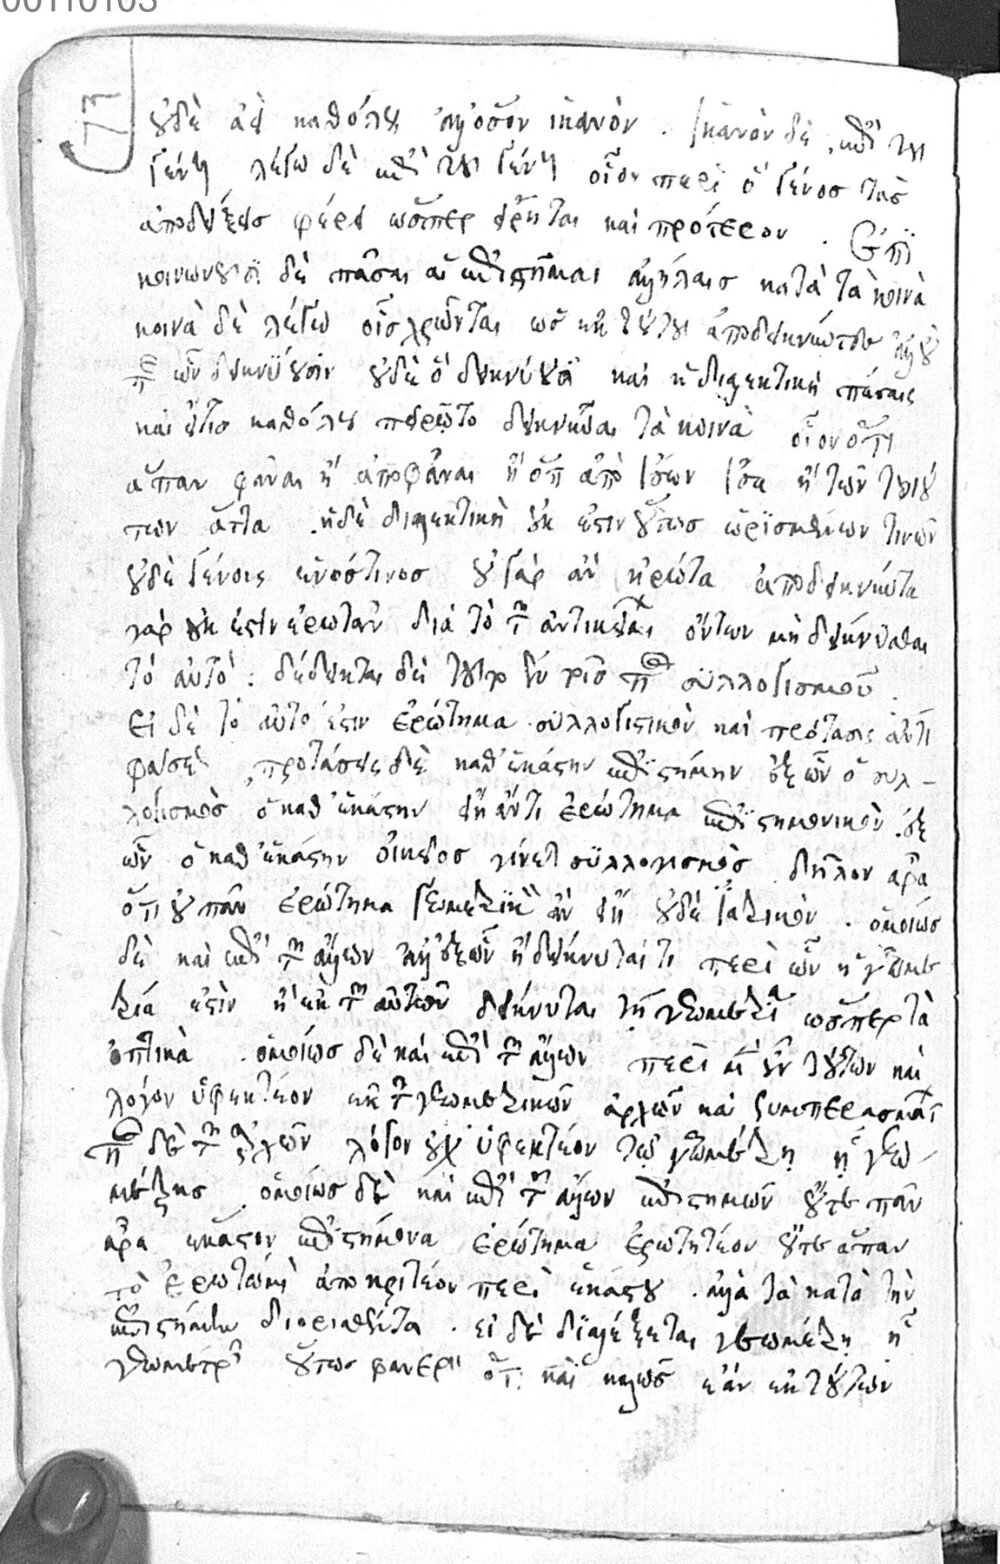 00110103
73
οὐδὲ ἀεὶ καθόλου ἀλλ' ὅσον ἱκανόν. ἱκανὸν δὲ ἐπὶ τοῦ
γένους λέγω δὲ ἐπὶ τοῦ γένους οἷον περὶ ὃ γένος τὰς
ἀποδείξεις φέρει ὥσπερ εἴρηται καὶ πρότερον. Ἐπι
κοινωνοῦσι δὲ πᾶσαι αἱ ἐπιστῆμαι ἀλλήλαις κατὰ τὰ κοινὰ
κοινὰ δὲ λέγω οἷς χρῶνται ὡς ἐκ τούτων ἀποδεικνύντες ἀλλ' οὐ
περὶ ὧν δεικνύουσιν οὐδὲ ὃ δεικνύουσι καὶ ἡ διαλεκτικὴ πάσαις
καὶ εἴ τις καθόλου πειρῷτο δεικνύναι τὰ κοινὰ οἷον ὅτι
ἅπαν φάναι ἢ ἀποφάναι ἢ ὅτι ἀπὸ ἴσων ἴσα ἢ τῶν τοιού
των ἄττα. ἡ δὲ διαλεκτικὴ οὐκ ἔστιν οὕτως ὡρισμένων τινῶν
οὐδὲ γένους ἑνός τινος οὐ γὰρ ἂν ἠρώτα ἀποδεικνύντα
γὰρ οὐκ ἔστιν ἐρωτᾶν διὰ τὸ τῶν ἀντικειμένων ὄντων μὴ δείκνυσθαι
τὸ αὐτό. δέδεικται δὲ τοῦτο ἐν τοῖς περὶ συλλογισμοῦ.
Εἰ δὲ τὸ αὐτό ἐστιν ἐρώτημα συλλογιστικὸν καὶ πρότασις ἀντι
φάσεως, προτάσεις δὲ καθ' ἑκάστην ἐπιστήμην ἐξ ὧν ὁ συλ-
λογισμὸς ὁ καθ' ἑκάστην εἴη ἄν τι ἐρώτημα ἐπιστημονικὸν ἐξ
ὧν ὁ καθ' ἑκάστην οἰκεῖος γίνεται συλλογισμὸς. δῆλον ἄρα
ὅτι οὐ πᾶν ἐρώτημα γεωμετρικὸν ἂν εἴη οὐδὲ ἰατρικόν. ὁμοίως
δὲ καὶ ἐπὶ τῶν ἄλλων ἀλλ' ἐξ ὧν ἢ δείκνυταί τι περὶ ὧν ἡ γεωμε
τρία ἐστὶν ἢ ἐκ τῶν αὐτῶν δείκνυται τῇ γεωμετρίᾳ ὥσπερ τὰ
ὀπτικά. ὁμοίως δὲ καὶ ἐπὶ τῶν ἄλλων περὶ μὲν οὖν τούτων καὶ
λόγον ὑφεκτέον ἐκ τῶν γεωμετρικῶν ἀρχῶν καὶ συμπερασμάτων
περὶ δὲ τῶν ἀρχῶν λόγον οὐχ ὑφεκτέον τῷ γεωμέτρῃ ᾗ γεω-
μέτρης ὁμοίως δὲ καὶ ἐπὶ τῶν ἄλλων ἐπιστημῶν οὔτε πᾶν
ἄρα ἕκαστον ἐπιστήμονα ἐρώτημα ἐρωτητέον οὔτε ἅπαν
τὸ ἐρωτώμενον ἀποκριτέον περὶ ἑκάστου. ἀλλὰ τὰ κατὰ τὴν
ἐπιστήμην διορισθέντα. εἰ δὲ διαλέξεται γεωμέτρῃ ᾗ
γεωμέτρης οὕτως φανερὸν ὅτι καὶ καλῶς ἐὰν ἐκ τούτων